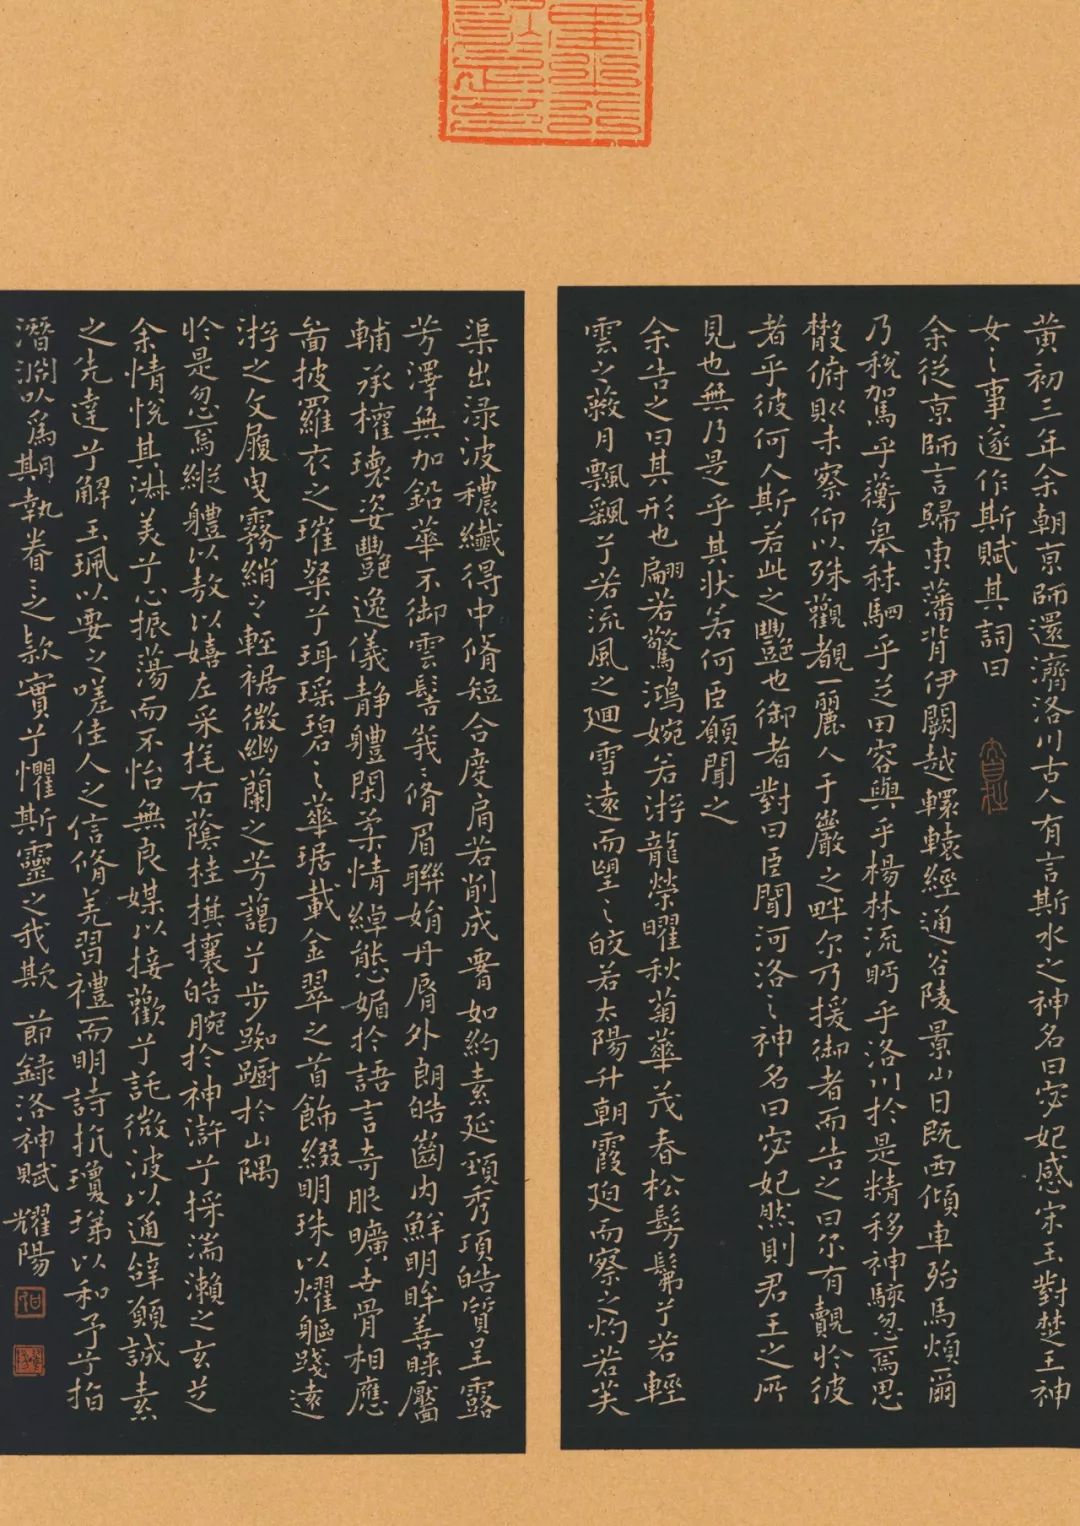 黄初三年余朝京師還濟洛川古人有言斯水之神名曰宓妃感宋玉對楚王神
女之事遂作斯賦其詞曰
余從京師言歸東藩背伊闕越轘轅經通谷陵景山日既西傾車殆馬煩爾
乃稅駕乎蘅皋秣駟乎芝田容與乎楊林流眄乎洛川於是精移神駭忽焉思
散俯則未察仰以殊觀覩一麗人于巖之畔尔乃援御者而告之曰尔有覿於彼
者乎彼何人斯若此之豔也御者對曰臣聞河洛之神名曰宓妃然則君王之所
見也無乃是乎其狀若何臣願聞之
余告之曰其形也翩若驚鴻婉若游龍榮曜秋菊華茂春松髣髴兮若輕
雲之蔽月飄飖兮若流風之廻雪遠而望之皎若太陽升朝霞迫而察之灼若芙
渠出淥波穠纖得中脩短合度肩若削成要如約素延頸秀項皓質呈露
芳澤無加鉛華不御雲髻峩峩脩眉聯娟丹脣外朗皓齒内鮮明眸善睞靨
輔承權瓌姿豔逸儀静體閑柔情綽態媚於語言奇服曠世骨相應
啚披羅衣之璀粲兮珥瑤碧之華琚載金翠之首飾綴明珠以燿軀踐遠
游之文履曳霧綃之輕裾微幽蘭之芳藹兮步踟蹰於山隅
於是忽焉縱體以敖以嬉左采旄右蔭桂旗攘皓腕於神滸兮採湍瀨之玄芝
余情悅其淑美兮心振蕩而不怡無良媒以接歡兮託微波以通辭願誠素
之先達兮解玉珮以要之嗟佳人之信脩羌習禮而明詩抗瓊珶以和予兮指
潛淵以為期執眷眷之款實兮懼斯靈之我欺 節録洛神賦 耀陽